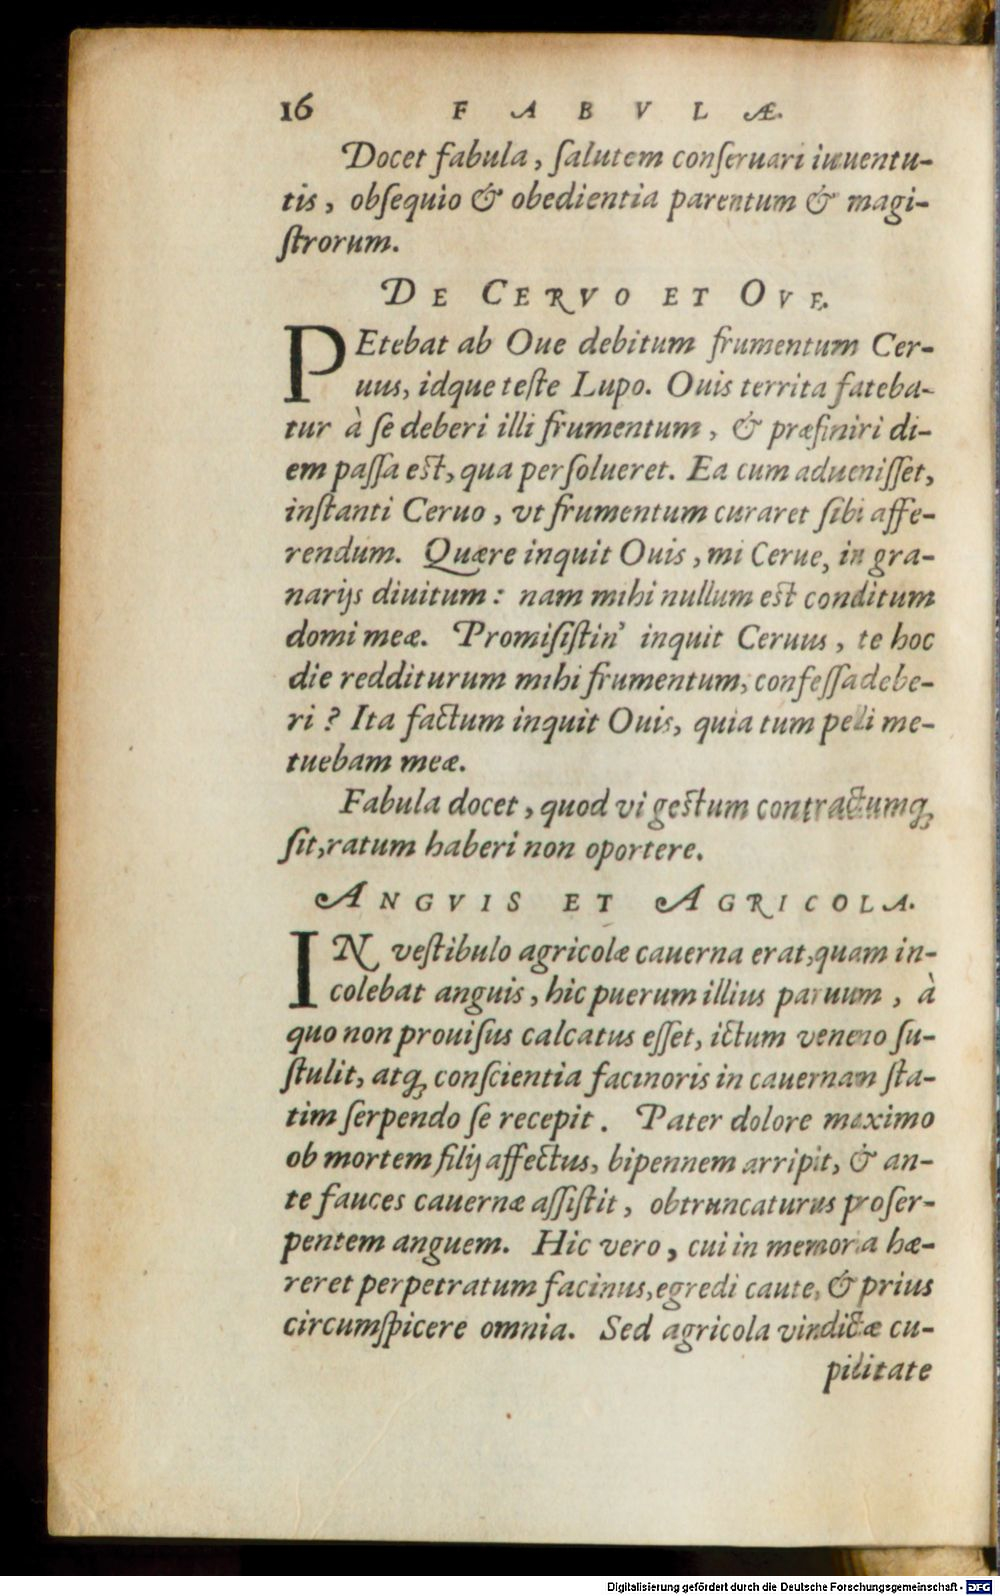 16 FABVLÆ.
Docet fabula, ſalutem conſeruari iuuentu-
tis, obſequio & obedientia parentum & magi-
ſtrorum.
DE CERVO ET OVE.
PEtebat ab Oue debitum frumentum Cer-
uus, idque teſte Lupo. Ouis territa fateba-
tur à ſe deberi illi frumentum, & præfiniri di-
em paſſa eſt, qua perſolueret. Ea cum adueniſſet,
inſtanti Ceruo, vt frumentum curaret ſibi affe-
rendum. Quære inquit Ouis, mi Cerue, in gra-
narijs diuitum: nam mihi nullum eſt conditum
domi meæ. Promiſiſtin' inquit Ceruus, te hoc
die redditurum mihi frumentum, confeſſa debe-
ri? Ita factum inquit Ouis, quia tum pelli me-
tuebam meæ.
Fabula docet, quod vi geſtum contractumq;
ſit, ratum haberi non oportere.
ANGVIS ET AGRICOLA.
IN veſtibulo agricolæ cauerna erat, quam in-
colebat anguis, hic puerum illius paruum, à
quo non prouiſus calcatus eſſet, ictum veneno ſu-
ſtulit, atq; conſcientia facinoris in cauernam ſta-
tim ſerpendo ſe recepit. Pater dolore maximo
ob mortem filij affectus, bipennem arripit, & an-
te fauces cauernæ aſſiſtit, obtruncaturus proſer-
pentem anguem. Hic vero, cui in memoria hæ-
reret perpetratum facinus, egredi caute, & prius
circumſpicere omnia. Sed agricola vindictæ cu-
piditate
Digitalisierung gefördert durch die Deutsche Forschungsgemeinschaft - DFG